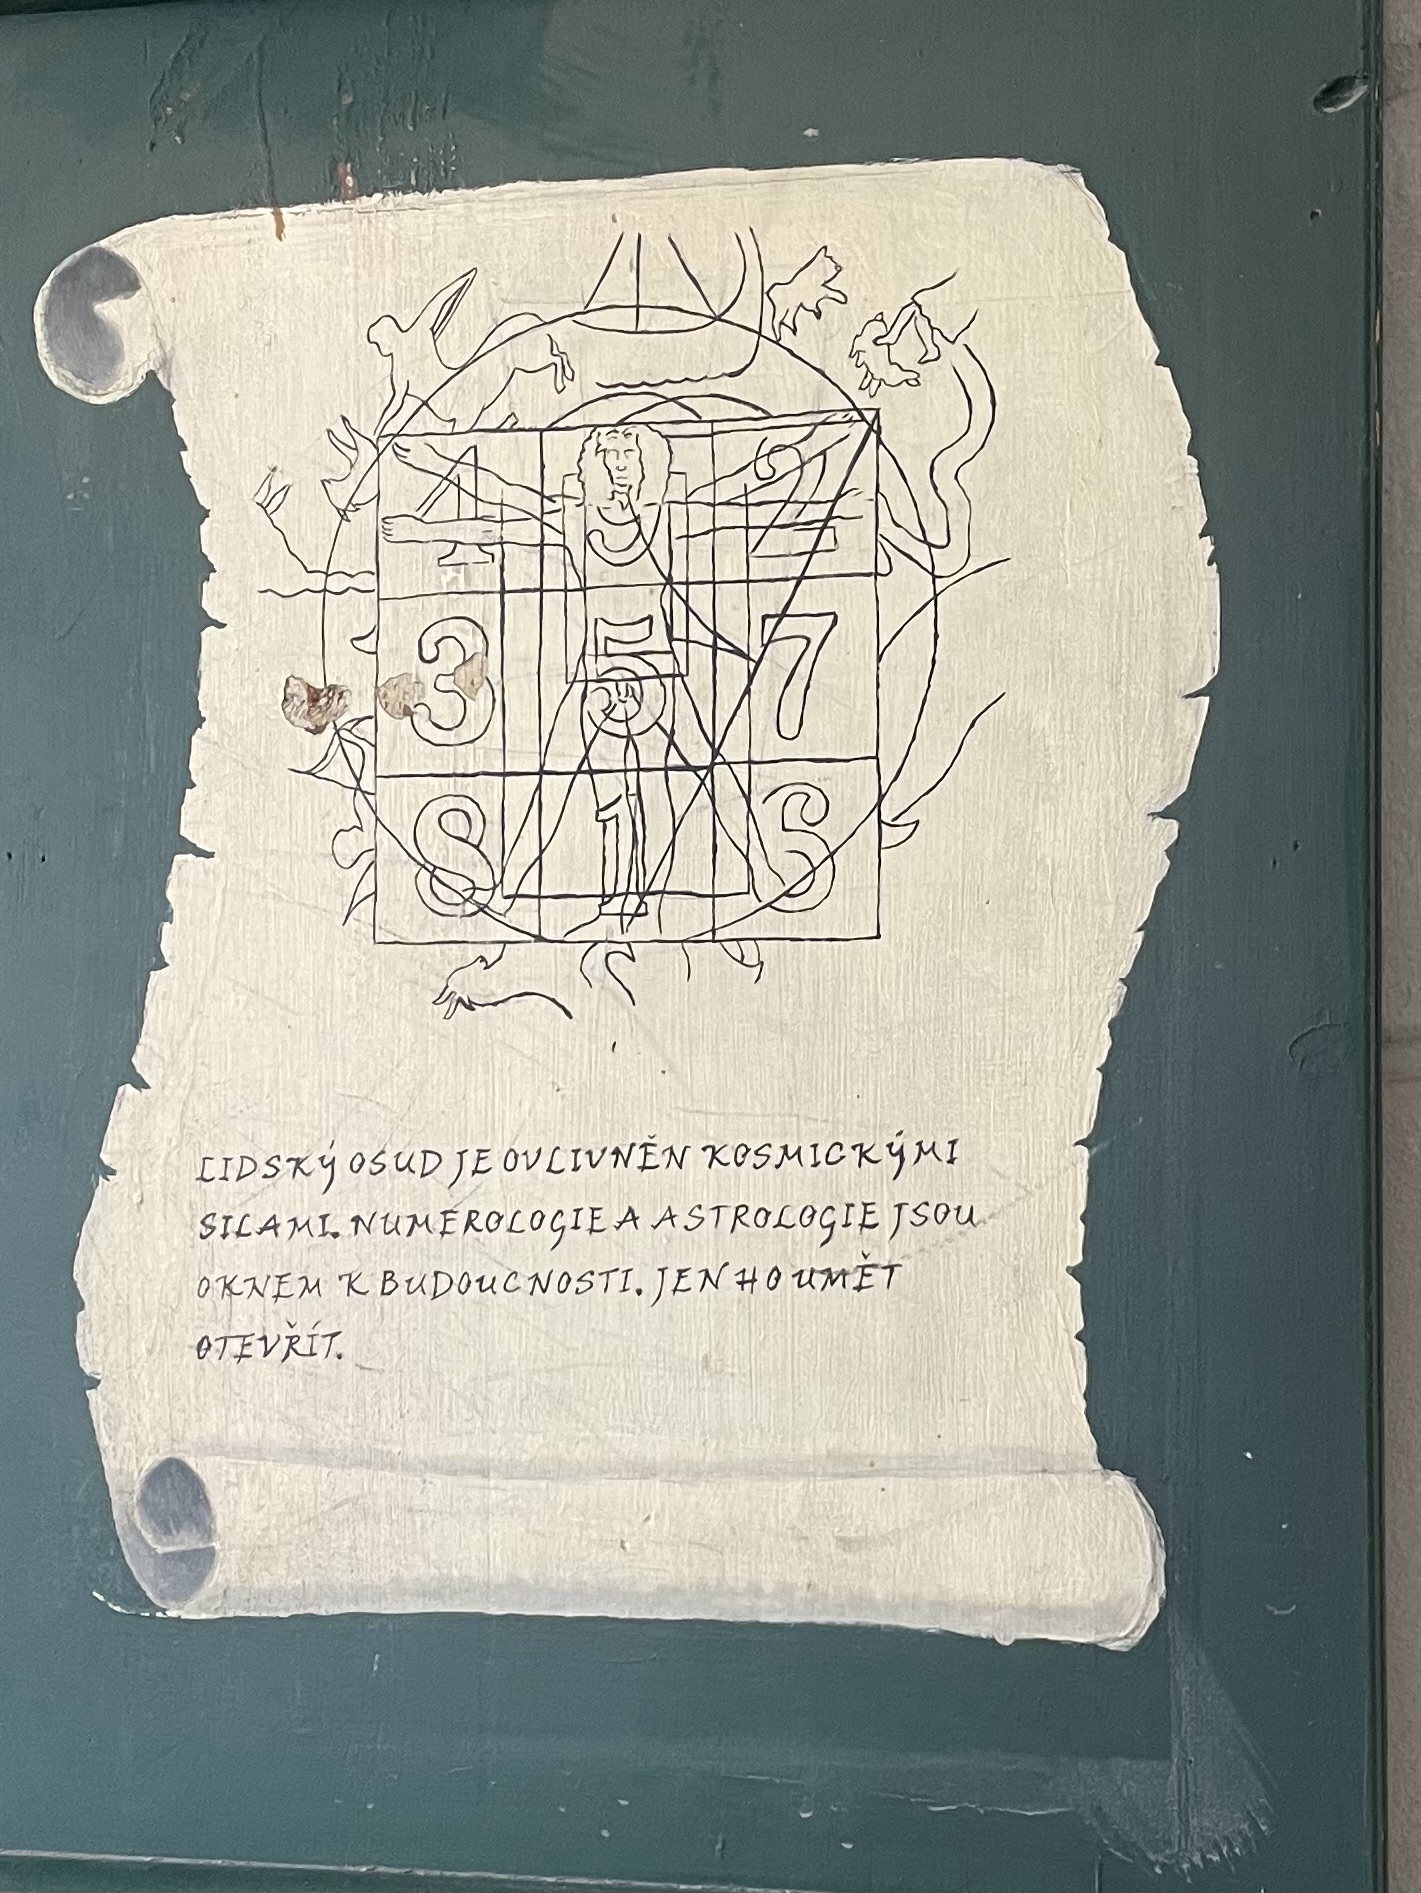 4 9 2
3 5 7
8 1 6
LIDSKÝ OSUD JE OVLIVNĚN KOSMICKÝMI
SILAMI. NUMEROLOGIE A ASTROLOGIE JSOU
OKNEM K BUDOUCNOSTI. JEN HO UMĚT
OTEVŘÍT.